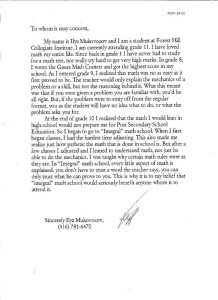 To whom is may concern,
My name is Ilya Mukovozov and I am a student at Forest Hill
Collegiate Institute, I am currently attending grade 11. I have loved
math my entire life. Since back in grade 1 I have never had to study
for a math test, nor really try hard to get very high marks. In grade 8,
I wrote the Gauss Math Contest and got the highest score in my
school. As I entered grade 9, I realized that math was no as easy as it
first proved to be. The teacher would only explain the mechanics of a
problem or a skill, but not the reasoning behind it. What this meant
was that if you were given a problem you are familiar with, you'd be
all right. But, if the problem were to stray off from the regular
format, you as the student will have no idea what to do, or what the
problem asks you for.
At the end of grade 10 I realized that the math I would learn in
high school would not prepare me for Post Secondary School
Education. So I began to go to "Integral" math school. When I first
began classes, I had the hardest time adjusting. This also made me
realize just how pathetic the math that is done in school is. But after a
few classes I adjusted and I leaned to understand math, not just be
able to do the mechanics. I was taught why certain math rules were as
they are. In "Integral" math school, every little aspect of math is
explained, you don't have to trust a word the teacher says, you can
only trust what he can prove to you. This is why it is to my belief that
"integral" math school would seriously benefit anyone whom is to
attend it.
Sincerely Ilya Mukovozov,
(416) 781-6470